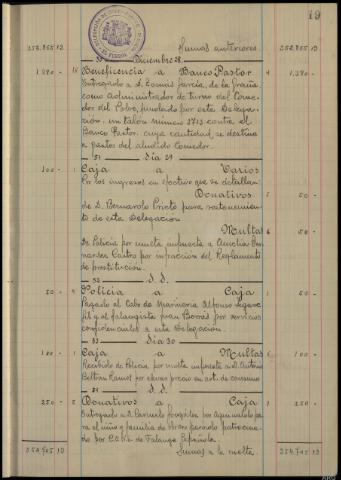 19
Sumas anteriores
252.855 13
252.855 13
Diciembre 28
1.290 - Beneficencia a Banco Pastor 4 1.290 -
Entregado a D. Tomás García, de la Graña
como administrador de turno del Come-
dor del Pobre, fundado por esta Delega-
ción, un talón número 2713 contra el
Banco Pastor, cuya cantidad, se destina
a gastos del aludido Comedor.
51 Día 29
100 - 1 Caja a Varios
Por los ingresos en efectivo que se detallan:
Donativos 5 50 -
de D. Bernardo Prieto para sostenimien-
to de esta Delegación
Multas 6 50 -
De Policía por multa impuesta a Amelia Fer-
nández Castro por infracción del Reglamento
de prostitución.
52 d. d.
50 - Policía a Caja 1 50 -
Pagado al Cabo de Marinería Alfonso
y al falangista Juan Borrás por servicios
confidenciales a esta Delegación.
53 Día 30
100 - 1 Caja a Multas 6 100 -
Recibido de Policía por multa impuesta a D. Antonio
Beltrán Ramos por elevar precio en art. de consumo
54 d. d.
250 - 5 Donativos a Caja 1 250 -
Entregado a D. González por aguinaldo pa-
ra el niño y familia de
do por C.A.V.E. de Falange Española.
254.745 13
Sumas a la vuelta.
254.745 13